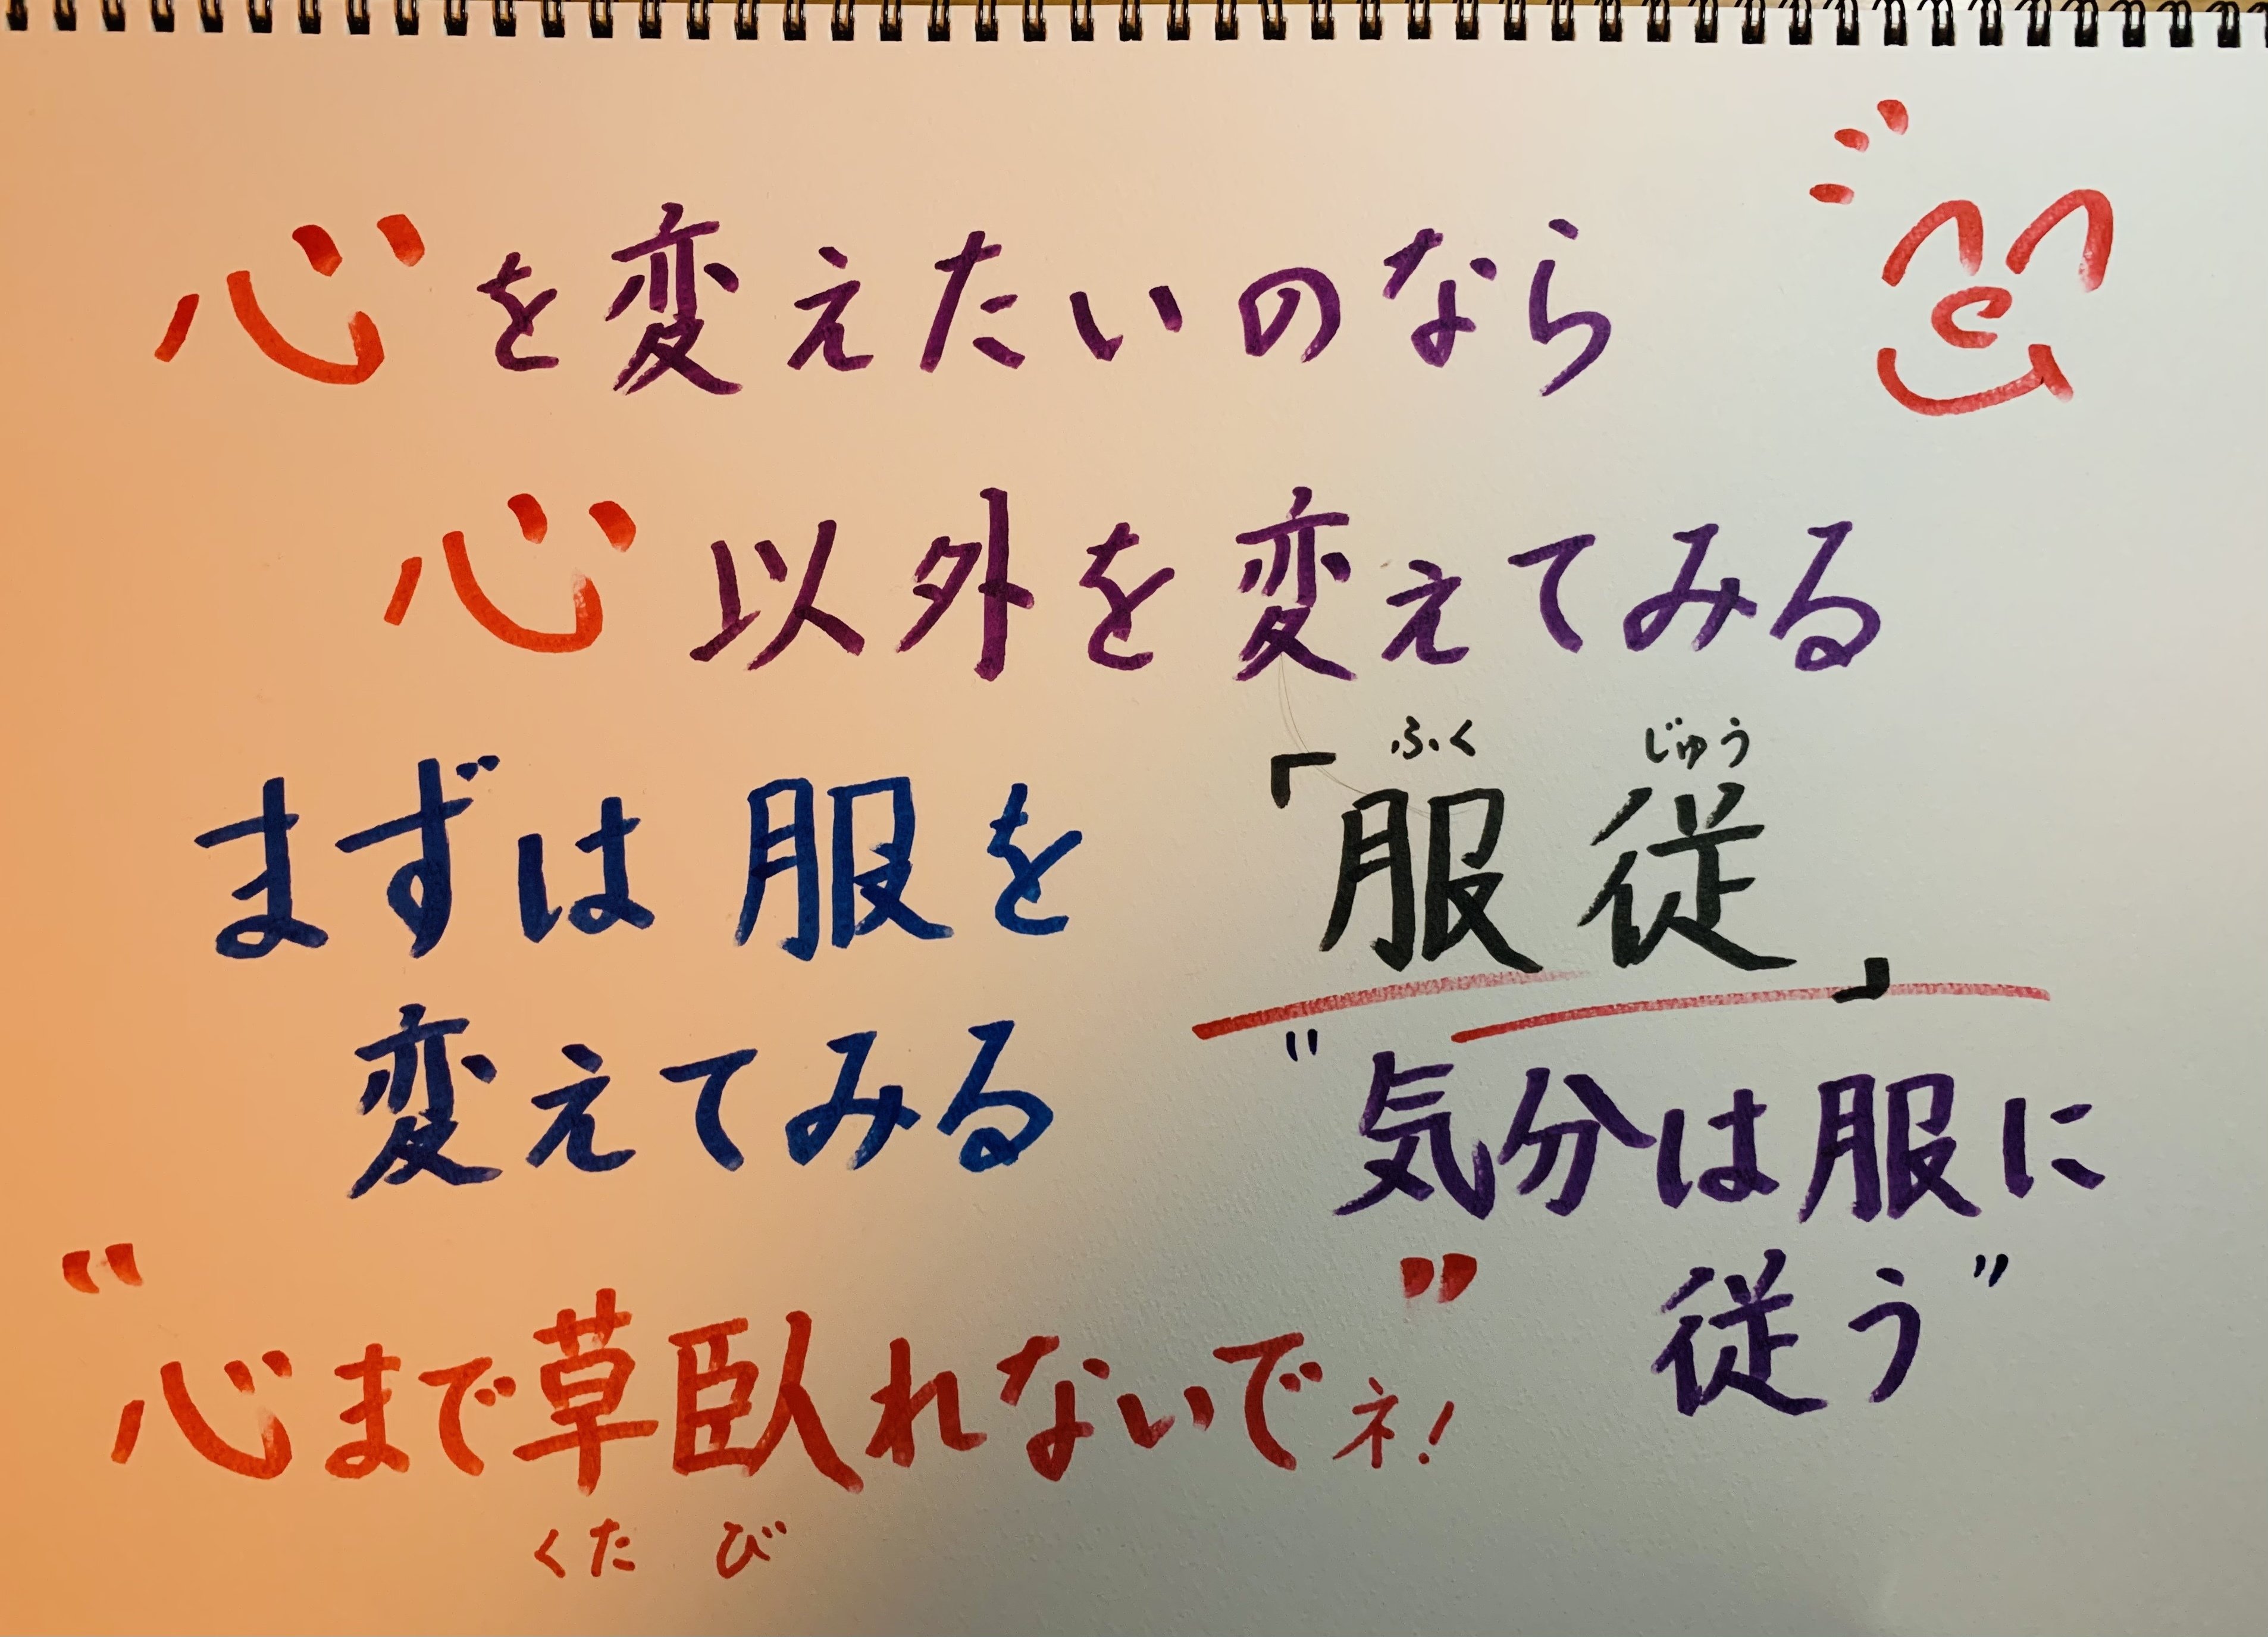 心を変えたいのなら
心以外を変えてみる
まずは服を
変えてみる
ふくじゅう
「服従」
"気分は服に
従う"
"心まで草臥れないでネ!"
くたび